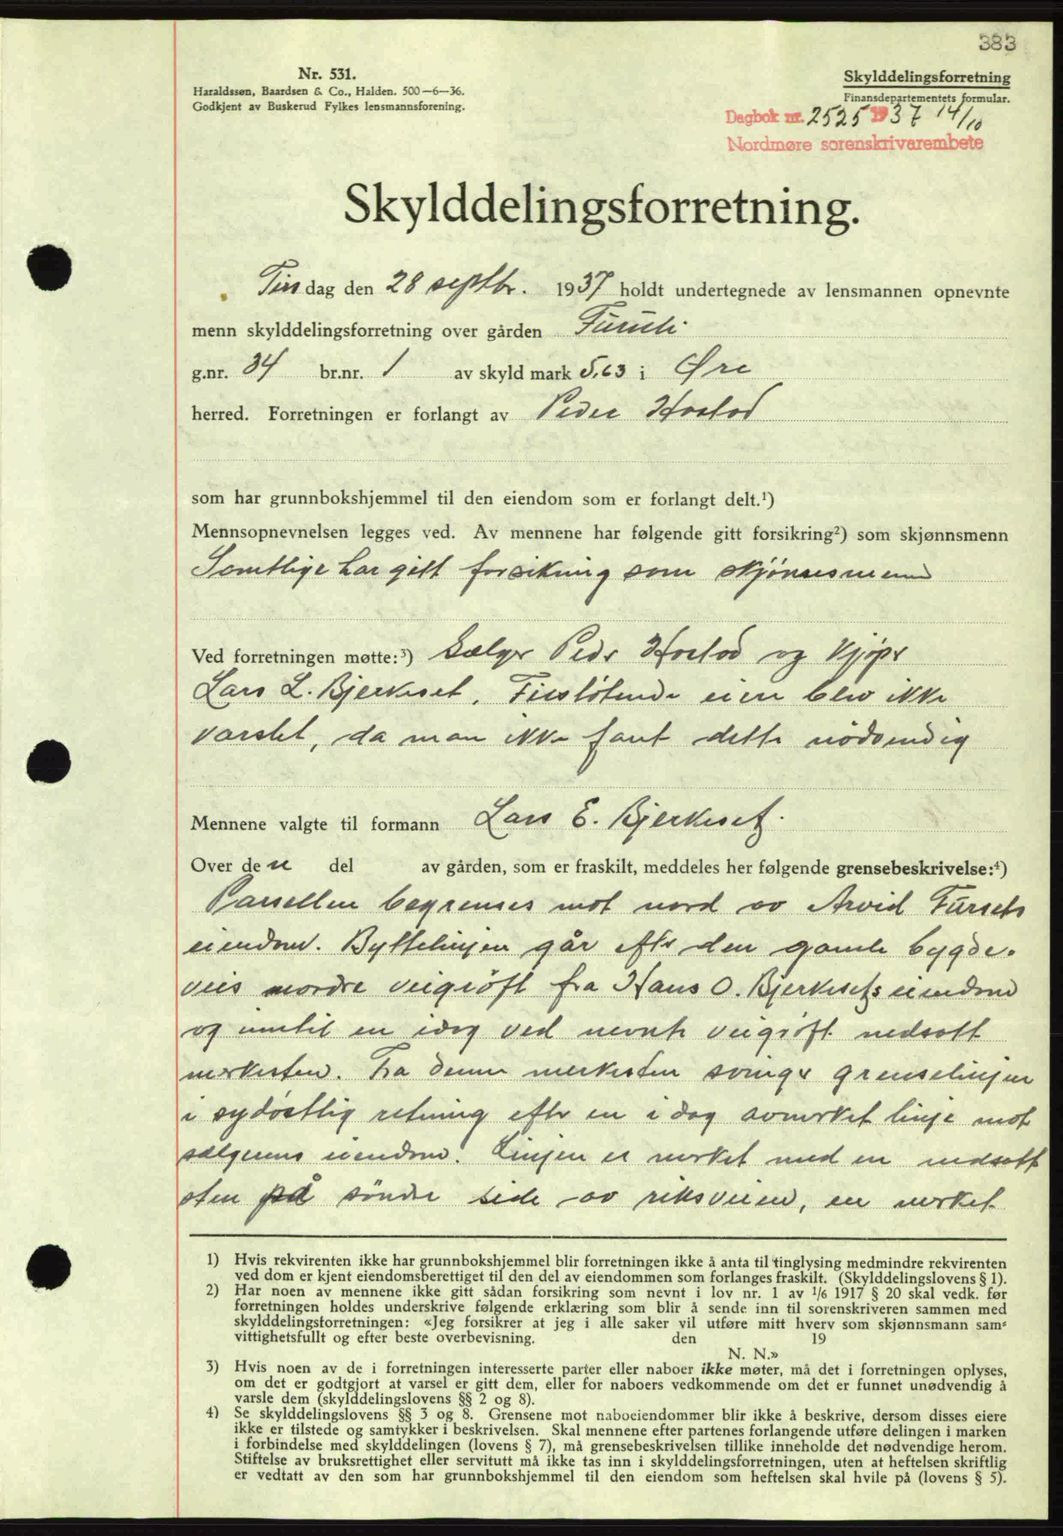 383
Nr. 531.
Haraldssøn, Baardsen & Co., Halden. 500—6—36.
Godkjent av Buskerud Fylkes lensmannsforening.
Skylddelingsforretning
Finansdepartementets formular.
Dagbok nr. 2525 1937 14/10
Nordmøre sorenskrivarembete
Skylddelingsforretning.
Tirsdag den 28 septbr. 1937 holdt undertegnede av lensmannen opnevnte
menn skylddelingsforretning over gården Furuli
g.nr. 34 br.nr. 1 av skyld mark 5,63 i Øre
herred. Forretningen er forlangt av Peder Hostad
som har grunnbokshjemmel til den eiendom som er forlangt delt.¹)
Mennsopnevnelsen legges ved. Av mennene har følgende gitt forsikring²) som skjønnsmenn
Samtlige har gitt forsikring som skjønnsmenn
Ved forretningen møtte:³) Sælger Peder Hostad og kjøper
Lars L. Bjerkeset. Tilstøtende eiere blev ikke
varslet, da man ikke fant dette nødvendig
Mennene valgte til formann Lars E. Bjerkeset.
Over den del av gården, som er fraskilt, meddeles her følgende grensebeskrivelse:⁴)
Parsellen begrenses mot nord av Arvid Fursets
eiendom. Byttelinjen går efter den gamle bygde-
veis nordre veigrøft fra Hans O. Bjerkesets eiendom
og inntil en idag ved nevnte veigrøft nedsatt
merkesten. Fra denne merkesten svinger grenselinjen
i sydøstlig retning efter en i dag avmerket linje mot
sælgerens eiendom. Linjen er merket med en nedsatt
sten på søndre side av riksveien, en merket
1) Hvis rekvirenten ikke har grunnbokshjemmel blir forretningen ikke å anta til tinglysing medmindre rekvirenten
ved dom er kjent eiendomsberettiget til den del av eiendommen som forlanges fraskilt. (Skylddelingslovens § 1).
2) Har noen av mennene ikke gitt sådan forsikring som nevnt i lov nr. 1 av 1/6 1917 § 20 skal vedk. før
forretningen holdes underskrive følgende erklæring som blir å sende inn til sorenskriveren sammen med
skylddelingsforretningen: «Jeg forsikrer at jeg i alle saker vil utføre mitt hverv som skjønnsmann sam-
vittighetsfullt og efter beste overbevisning. den 19
N. N.»
3) Hvis noen av de i forretningen interesserte parter eller naboer ikke møter, må det i forretningen oplyses,
om det er godtgjort at varsel er gitt dem, eller for naboers vedkommende om det er funnet unødvendig å
varsle dem (skylddelingslovens §§ 2 og 8).
4) Se skylddelingslovens §§ 3 og 8. Grensene mot naboeiendommer blir ikke å beskrive, dersom disses eiere
ikke er tilstede og samtykker i beskrivelsen. Skal mennene efter partenes forlangende utføre delingen i marken
i forbindelse med skylddelingen (lovens § 7), må grensebeskrivelsen tillike inneholde det nødvendige herom.
Stiftelse av bruksrettighet eller servitutt må ikke tas inn i skylddelingsforretningen, uten at heftelsen skriftlig
er vedtatt av den som har grunnbokshjemmel til den eiendom som heftelsen skal hvile på (lovens § 5).